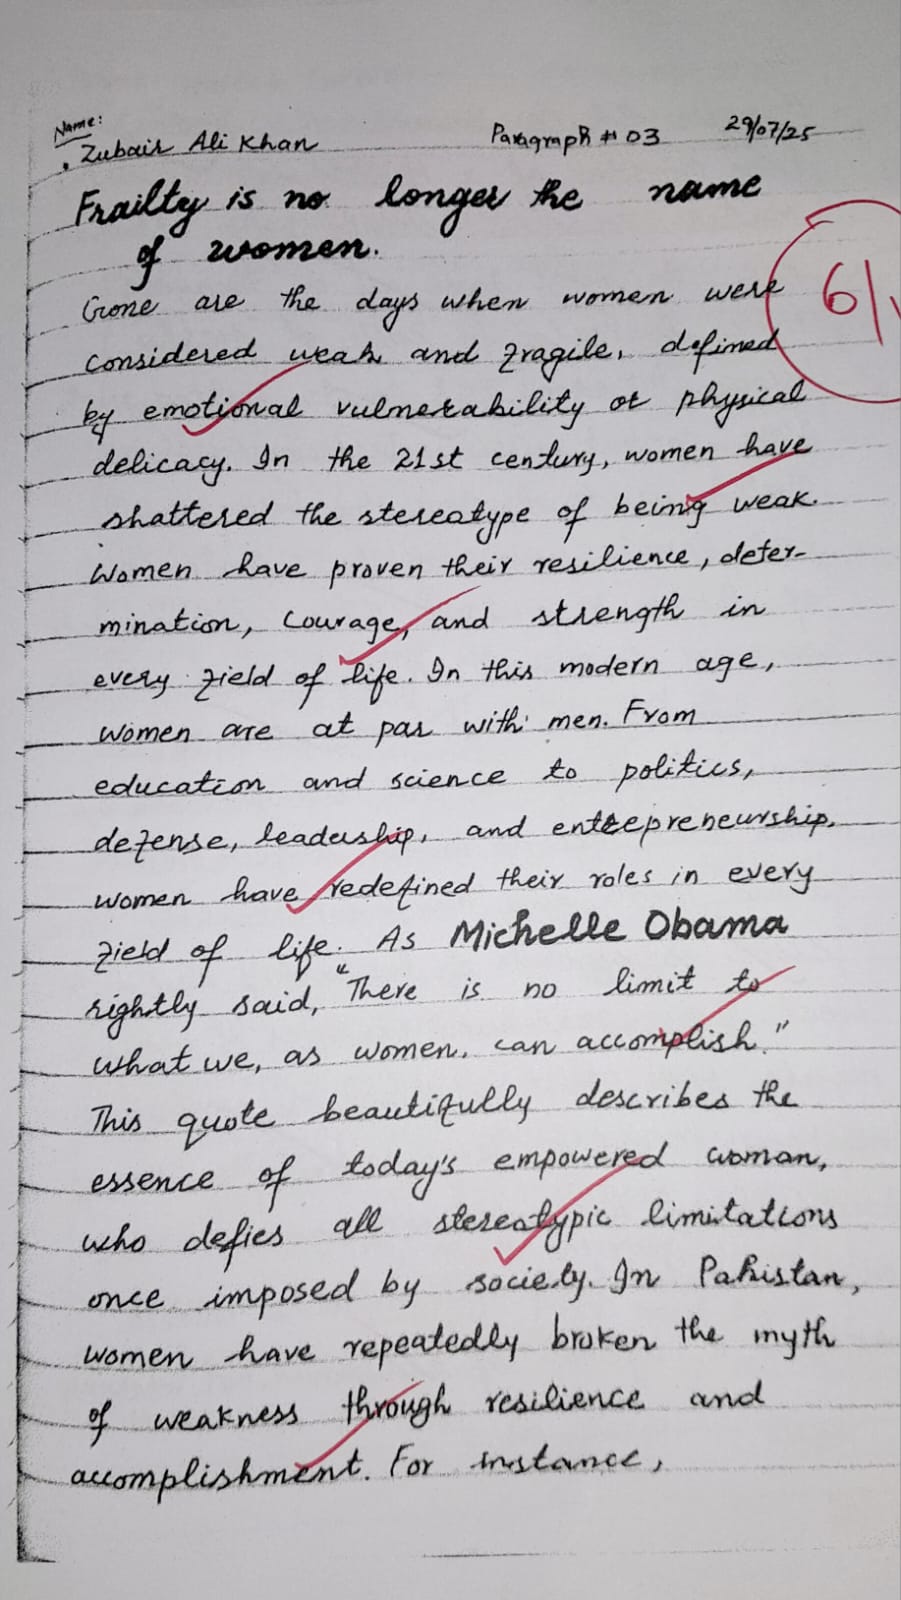 Name:
. Zubair Ali Khan Paragraph # 03 29/07/25
Frailty is no longer the name
of women.
6/
Gone are the days when women were
considered weak and fragile, defined
by emotional vulnerability or physical
delicacy. In the 21st century, women have
shattered the stereotype of being weak.
Women have proven their resilience, deter-
mination, courage, and strength in
every field of life. In this modern age,
women are at par with men. From
education and science to politics,
defense, leadership, and entrepreneurship,
women have redefined their roles in every
field of life. As Michelle Obama
rightly said, "There is no limit to
what we, as women, can accomplish."
This quote beautifully describes the
essence of today's empowered woman,
who defies all stereotypic limitations
once imposed by society. In Pakistan,
women have repeatedly broken the myth
of weakness through resilience and
accomplishment. For instance,